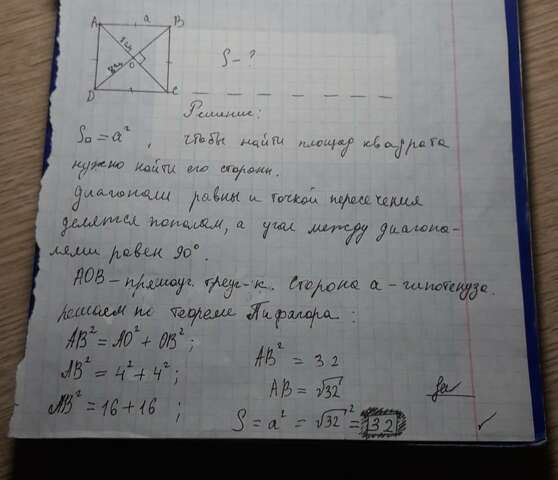 A a B
8 см
8 см
O
D C
S - ?
Решение:
S□ = a², чтобы найти площад квадрата
нужно найти его стороны.
Диагонали равны и точкой пересечения
делятся пополам, а угол между диагона-
лями равен 90°.
AOB - прямоуг. треуг-к. Сторона a - гипотенуза.
Решаем по теореме Пифагора:
AB² = AO² + OB²;
AB² = 4² + 4²;
AB² = 16 + 16 ;
AB² = 32
AB = √32
S = a² = √32² = 32